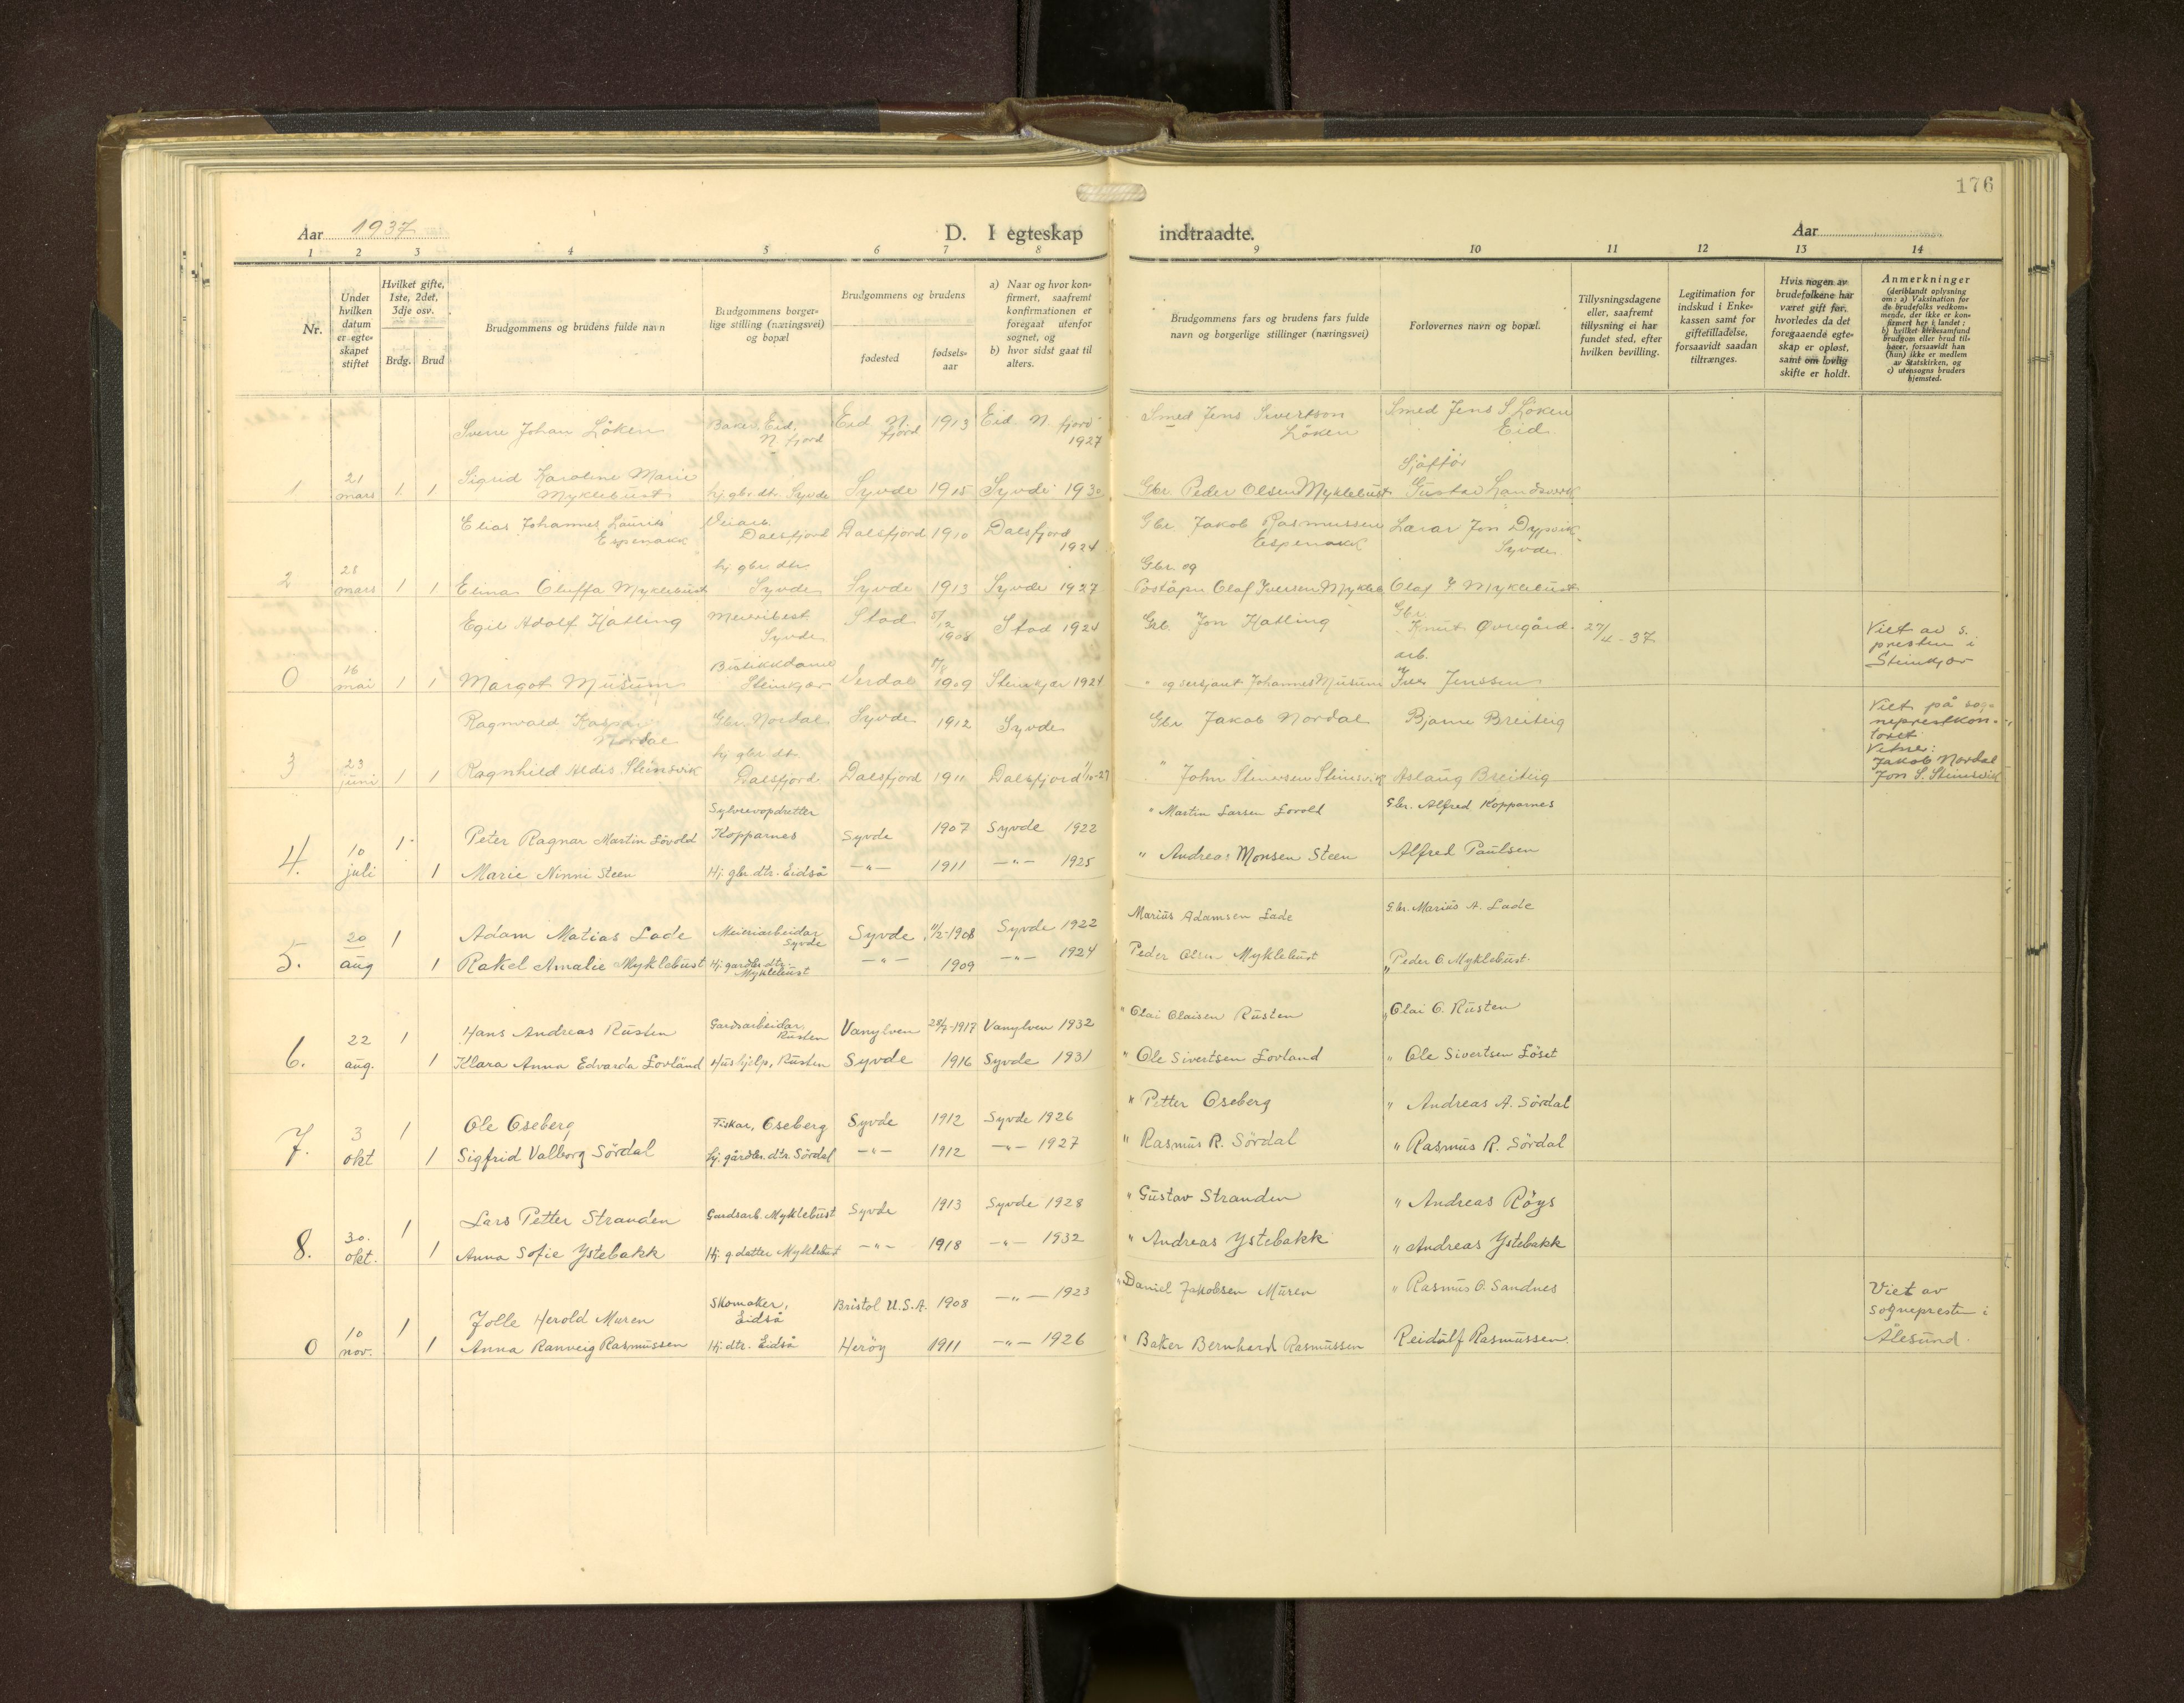 176
Aar 1937
D. I egteskap indtraadte.
Aar
1 2 3 4 5 6 7 8 9 10 11 12 13 14
Nr.
Under hvilken datum er egteskapet stiftet
Hvilket gifte, 1ste, 2det, 3dje osv.
Brdg. Brud
Brudgommens og brudens fulde navn
Brudgommens borgerlige stilling (næringsvei) og bopæl
Brudgommens og brudens
fødested
fødselsaar
a) Naar og hvor konfirmert, saafremt konfirmationen er foregaat utenfor sognet, og
b) hvor sidst gaat til alters.
Brudgommens fars og brudens fars fulde navn og borgerlige stillinger (næringsvei)
Forlovernes navn og bopæl.
Tillysningsdagene eller, saafremt tillysning ei har fundet sted, efter hvilken bevilling.
Legitimation for indskud i Enkekassen samt for giftetilladelse, forsaavidt saadan tiltrænges.
Hvis nogen av brudefolkene har været gift før, hvorledes da det foregaaende egteskap er opløst, samt om lovlig skifte er holdt.
Anmerkninger
(deriblandt oplysning om: a) Vaksination for de brudefolks vedkommende, der ikke er konfirmert her i landet; b) hvilket kirkesamfund brudgom eller brud tilhører, forsaavidt han (hun) ikke er medlem av Statskirken, og c) utensogns bruders hjemsted.
Sverre Johan Löken Baker, Eid, N fjord Eid N. fjord 1913 Eid N. fjord 1927 Smed Jens Sivertson Löken Smed Jens S Löken Eid
1 21 mars 1 1 Sigrid Karoline Marie Myklebust hj. gbr. dt. Syvde Syvde 1915 Syvde 1930 Gbr. Peder Olsen Myklebust Sjåfför Gustav Landsverk
Elias Johannes Laurits Espenakk Dalsfjord Dalsfjord 1910 Dalsfjord 1924 Gbr Jakob Rasmussen Espenakk Lærar Jon Dypvik Syvde
2 28 mars 1 1 Elinar Oluffa Myklebust hj gbr. dtr Syvde Syvde 1913 Syvde 1927 Gbr. og Poståpn Olaf Iversen Mykleb Olaf I Myklebust
Egil Adolf Hatling Meieribest. Syvde Stad 5/12 1908 Stad 1924 Grb. Jon Hatling Gbr. Knut Øvregård 27/4-37 Viet av s. presten i Steinkjær
0 16 mai 1 1 Margot Musum Butikkdame Steinkjær Verdal 1909 Steinkjær 1924 " og sersjant Johannes Musum arb. Jenssen
Ragnvald Kaspar Nordal Gbr. Nordal Syvde 1912 Syvde Gbr Jakob Nordal Bjarne Breiteig Viet på sogneprestkontoret Vitne: Jakob Nordal Jon S. Steinsvik
3 23 juni 1 1 Ragnhild Aldis Steinsvik hj gbr. dtr. Dalsfjord Dalsfjord 1911 Dalsfjord 1/10-27 " John Steinsvik Aslaug Breiteig
Peter Ragnar Martin Lövold Sylvrevopdretter Kopparnes Syvde 1907 Syvde 1922 " Martin Larsen Lovold Gbr. Alfred Kopparnes
4. 10 juli 1 1 Marie Ninni Steen Hj. gbr. dtr. Eidså —"— 1911 —"— 1925 " Andreas Monsen Steen Alfred Paulsen
Adam Matias Lade Meieriarbeidar Syvde Syvde 11/2-1908 Syvde 1922 Marius Adamsen Lade Gbr. Marius A. Lade
5. 20 aug 1 1 Rakel Amalie Myklebust Hj. gardbr. dtr. Myklebust —"— 1909 —"— 1924 Peder Olsen Myklebust " Peder O. Myklebust.
Hans Andreas Rusten Gardsarbeidar Rusten Vanylven 28/7-1917 Vanylven 1932 " Olai Olaisen Rusten " Olai O. Rusten
6. 22 aug. 1 1 Klara Anna Edvarda Lovland Hushjelp, Rusten Syvde 1916 Syvde 1931 " Ole Sivertsen Lovland " Ole Sivertsen Löset
Ole Oseberg Fiskar, Oseberg Syvde 1912 Syvde 1926 " Petter Oseberg " Andreas A. Sördal
7. 3 okt 1 1 Sigfrid Valborg Sördal hj. gårdbr. dtr. Sördal —"— 1912 —"— 1927 " Rasmus R. Sördal " Rasmus R. Sördal
Lars Petter Stranden Gardsarb. Myklebust Syvde 1913 Syvde 1928 " Gustav Stranden " Andreas Röys
8. 30. okt. 1 1 Anna Sofie Ystebakk Hj. g datter Myklebust —"— 1918 —"— 1932 " Andreas Ystebakk " Andreas Ystebakk
Jolle Herold Muren Skomaker, Eidså Bristol U.S.A. 1908 —"— 1923 " Daniel Jakobsen Muren " Rasmus O. Sandnes Viet av sognepresten i Ålesund.
0 10 nov. 1 1 Anna Ranveig Rasmussen Hj. dtr. Eidså Heröy 1911 —"— 1926 " Baker Bernhard Rasmussen Reidulf Rasmussen.